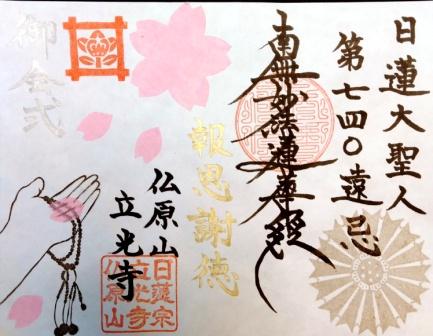 日蓮大聖人
第七四〇遠忌
南無妙法蓮華経
報恩謝徳
仏原山
立光寺
御会式
日蓮宗
立光寺
仏原山